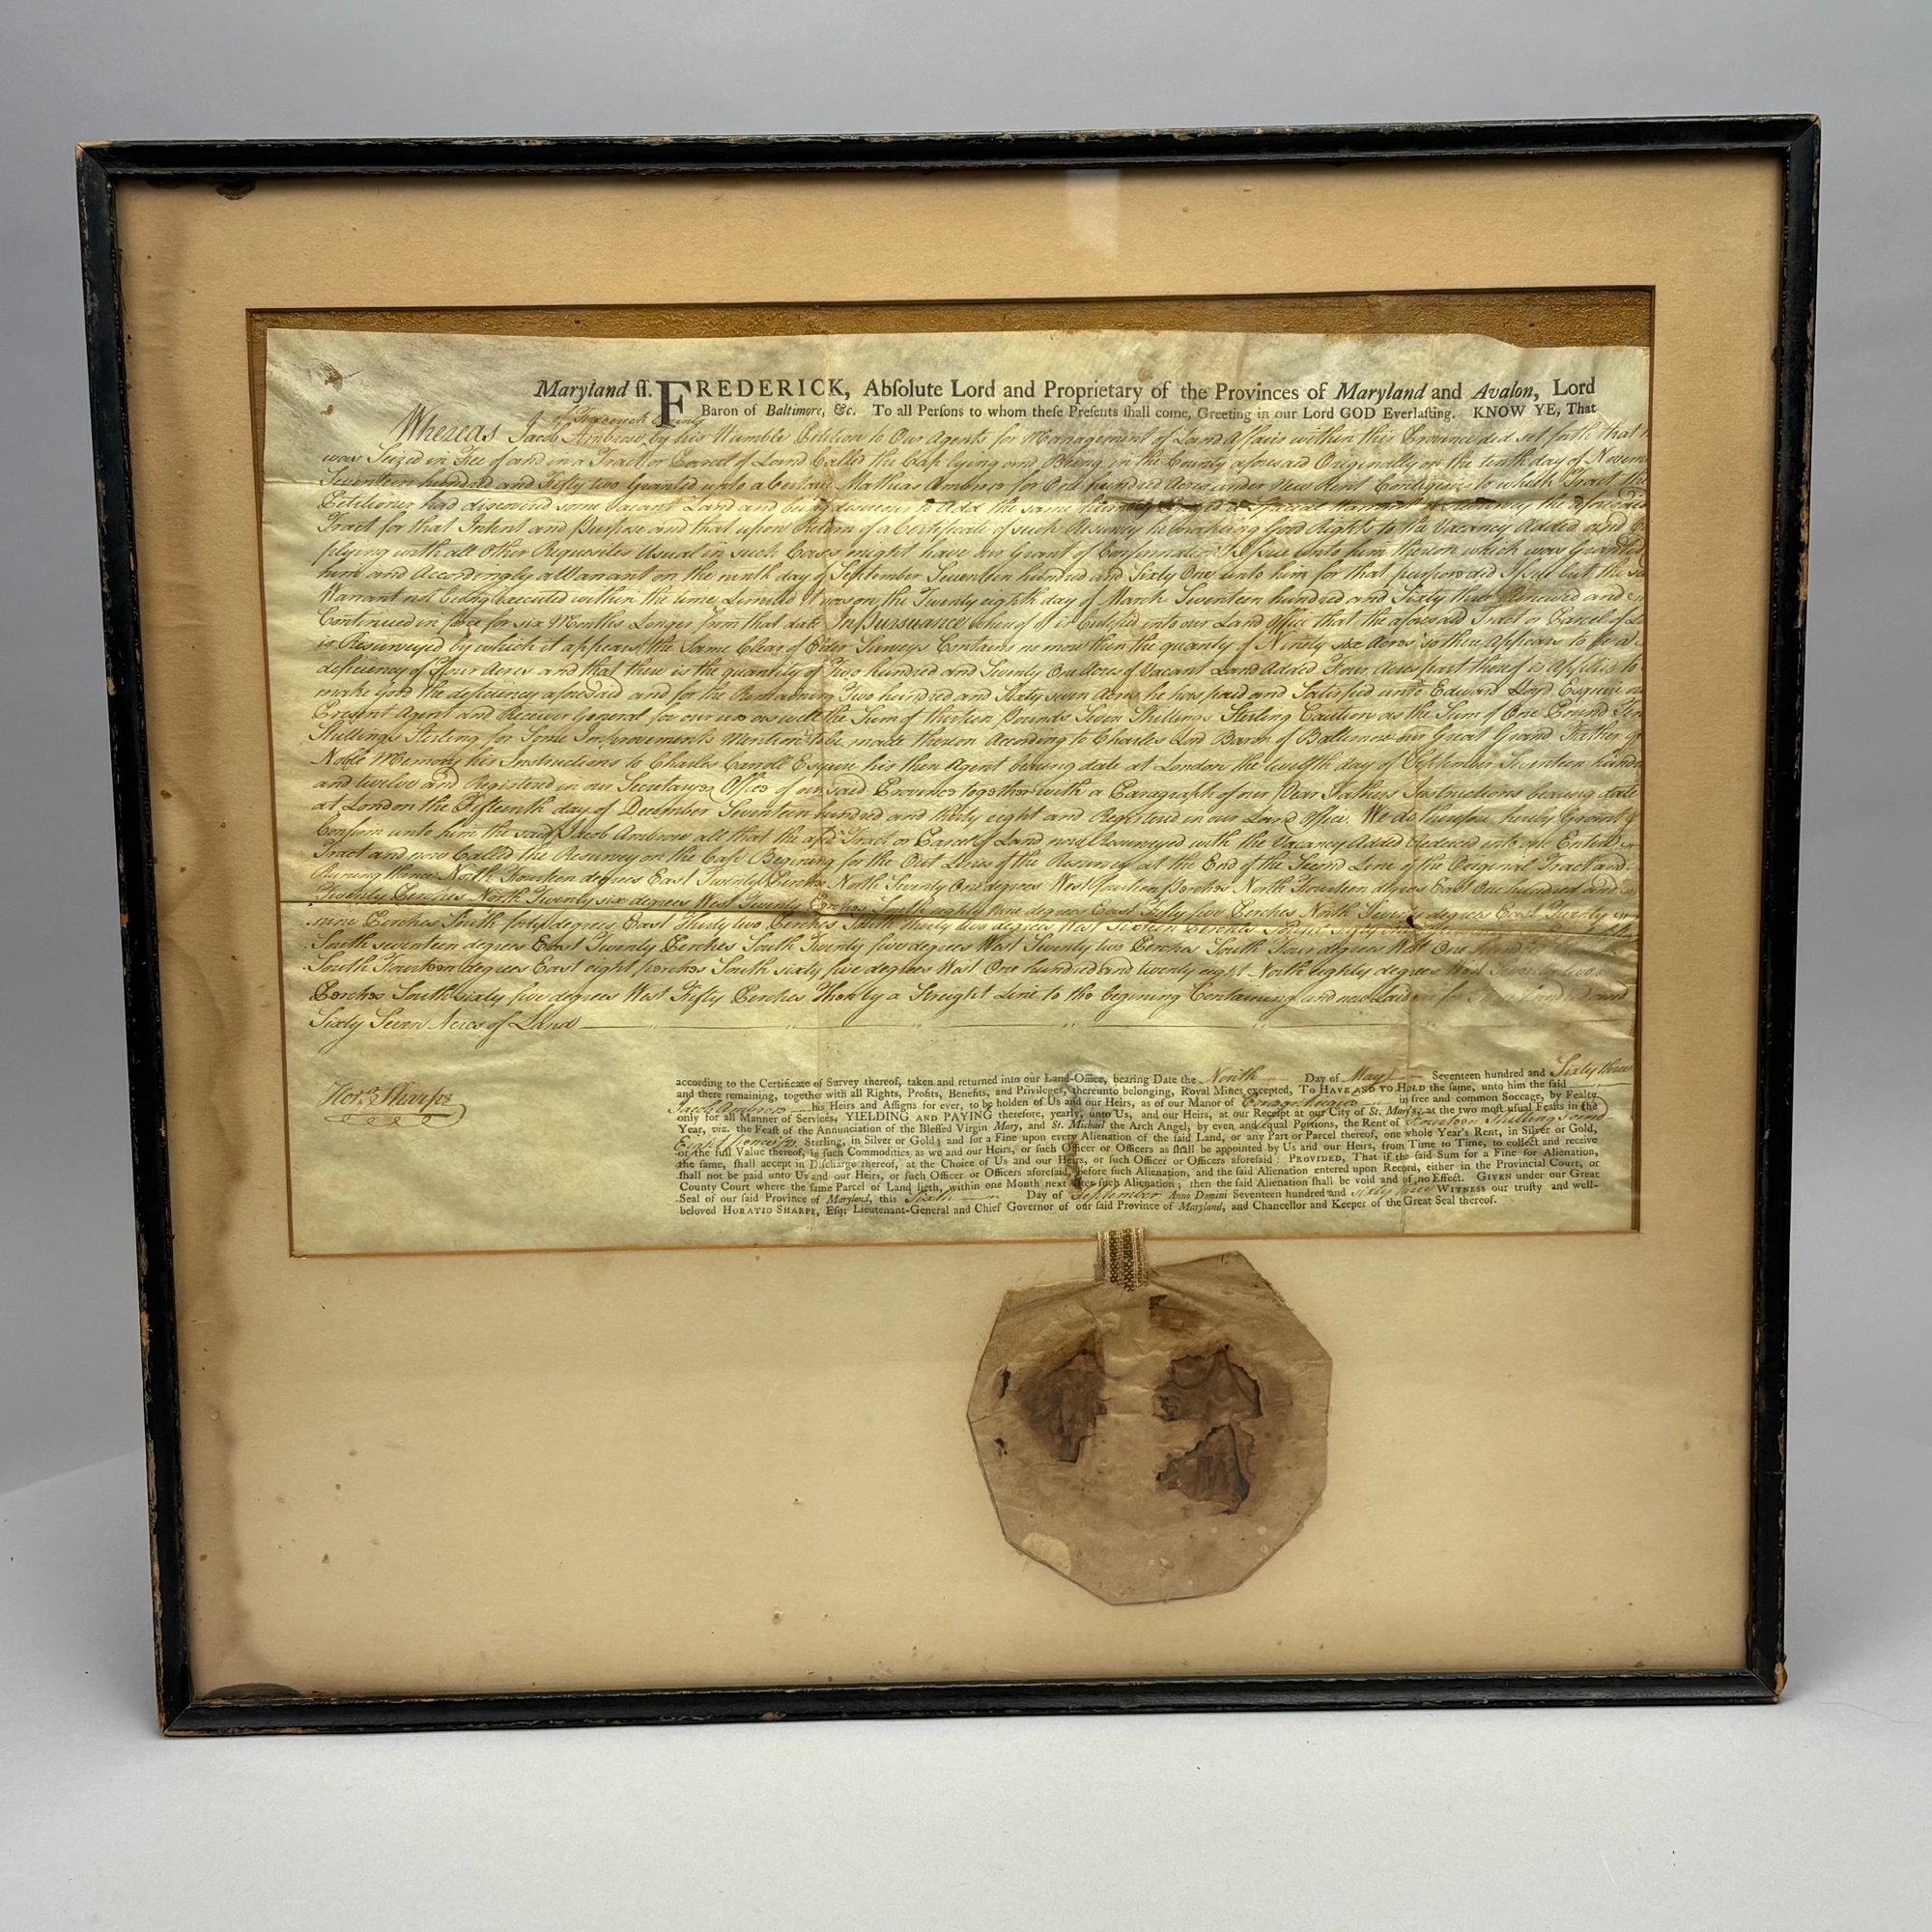 Maryland ſſ. FREDERICK, Abſolute Lord and Proprietary of the Provinces of Maryland and Avalon, Lord
Baron of Baltimore, &c. To all Perſons to whom theſe Preſents ſhall come, Greeting in our Lord GOD Everlaſting. KNOW YE, That
of Frederick County
Whereas Jacob Ambrose by his Humble Petition to Our Agents for Management of Land Affairs within this Province did set forth that
was Seized in Fee of and in a Tract or Parcel of Land Called the lying and Being in the County aforesaid Originally on the tenth day of Novem
Seventeen hundred and Fifty two Granted unto a Certain Mathias Ambrose for One hundred Acres under New Rent Contiguous to which Tract the
Petitioner had discovered some Vacant Land and being desirous to Add the same Special Warrant the aforesaid
Tract for that Intent and Purpose and that upon Return of a Certificate of such Resurvey he making Good Rights to the Vacancy Added and
plying with all Other Requisites Usual in such Cases might have our Grant of Confirmation Issue unto him thereon which was Granted
him and Accordingly a Warrant on the ninth day of September Seventeen hundred and Sixty One unto him for that purpose did Issue but the
Warrant not being executed within the time Limited it was on the Twenty eighth day of March Seventeen hundred and Sixty three Renewed and
Continued in force for six Months Longer from that date In Pursuance whereof it is Certified into our Land Office that the aforesaid Tract or Parcel of
is Resurveyed by which it appears the Same Clear of Elder Surveys Contains no more then the quantity of Ninety six Acres so there Appears to be a
deficiency of Four Acres and that there is the quantity of Two hundred and Seventy One Acres of Vacant Land Added Four Acres part thereof is Applied to
make Good the deficiency aforesaid and for the Remaining Two hundred and Sixty seven Acres he has paid and Satisfied unto Edward Lloyd Esquire
Present Agent and Receiver General for our use as well the Sum of thirteen Pounds Seven Shillings Sterling Caution as the Sum of One Pound Ten
Shillings Sterling for Some Improvements Mention'd to be made thereon According to Charles Lord Baron of Baltimore our Great Grand Father of
Noble Memory his Instructions to Charles Carroll Esquire his then Agent bearing date at London the twelfth day of September Seventeen hundred
and twelve and Registered in our Secretarys Office of our said Province together with a Paragraph of our Dear Fathers Instructions bearing date
at London the Fifteenth day of December Seventeen hundred and thirty eight and Registered in our Land Office. We do therefore hereby Grant &
Confirm unto him the said Jacob Ambrose all that the afd Tract or Parcel of Land now Resurveyed with the Vacancy Added Reduced into one Entire
Tract and now Called the Resurvey on the Begining for the Out Lines of the Resurvey at the End of the Second Line of the Original Tract and
Runing thence North Fourteen degrees East Twenty Perches North Seventy One degrees West fourteen Perches North Fourteen degrees East One hundred and
Twenty Perches North Twenty six degrees West Twenty Perches South eighty nine degrees East Fifty five Perches North Seventy degrees East Twenty
nine Perches South forty degrees East Thirty two Perches South thirty two degrees West Sixteen Perches South
South seventeen degrees East Twenty Perches South Twenty five degrees West Twenty two Perches South Four degrees West One hundred
South Fourteen degrees East eight perches South sixty five degrees West One hundred and twenty eight North eighty degrees West Seventy two
Perches South sixty five degrees West Fifty Perches Then by a Streight Line to the begining Containing and now Laid for hundred and
Sixty Seven Acres of Land
Horo. Sharpe
according to the Certificate of Survey thereof, taken and returned into our Land-Office, bearing Date the Ninth Day of May Seventeen hundred and Sixty three
and there remaining, together with all Rights, Profits, Benefits, and Privileges, thereunto belonging, Royal Mines excepted, TO HAVE AND TO HOLD the same, unto him the ſaid
Jacob Ambrose his Heirs and Aſſigns for ever, to be holden of Us and our Heirs, as of our Manor of Conegocheigue in free and common Soccage, by Fealty
only for all Manner of Services, YIELDING AND PAYING therefore, yearly, unto Us, and our Heirs, at our Receipt at our City of St. Mary's, at the two moſt uſual Feaſts in the
Year, viz. the Feaſt of the Annunciation of the Bleſſed Virgin Mary, and St. Michael the Arch Angel, by even and equal Portions, the Rent of Fourteen Shillings and
Eight pence Sterling, in Silver or Gold; and for a Fine upon every Alienation of the ſaid Land, or any Part or Parcel thereof, one whole Year's Rent, in Silver or Gold,
or the full Value thereof, in ſuch Commodities as we and our Heirs, or ſuch Officer or Officers as ſhall be appointed by Us and our Heirs, from Time to Time, to collect and receive
the ſame, ſhall accept in Diſcharge thereof, at the Choice of Us and our Heirs, or ſuch Officer or Officers aforeſaid: PROVIDED, That if the ſaid Sum for a Fine for Alienation,
ſhall not be paid unto Us and our Heirs, or ſuch Officer or Officers aforeſaid, before ſuch Alienation, and the ſaid Alienation entered upon Record, either in the Provincial Court, or
County Court where the ſame Parcel of Land lieth, within one Month next after ſuch Alienation; then the ſaid Alienation ſhall be void and of no Effect. GIVEN under our Great
Seal of our ſaid Province of Maryland, this Sixth Day of September Anno Domini Seventeen hundred and sixty three WITNESS our truſty and well-
beloved HORATIO SHARPE, Eſq; Lieutenant-General and Chief Governor of our ſaid Province of Maryland, and Chancellor and Keeper of the Great Seal thereof.